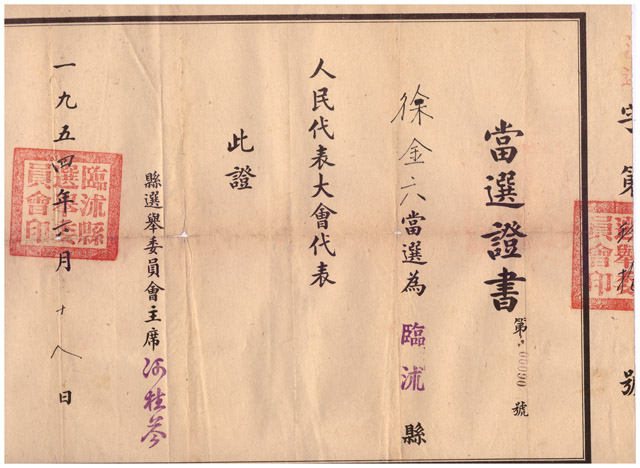 字第號
當選證書
第號
徐金六當選為臨沭縣
人民代表大會代表
此證
縣選舉委員會主席
一九五四年六月十八日
臨沭縣
選舉委
員會印